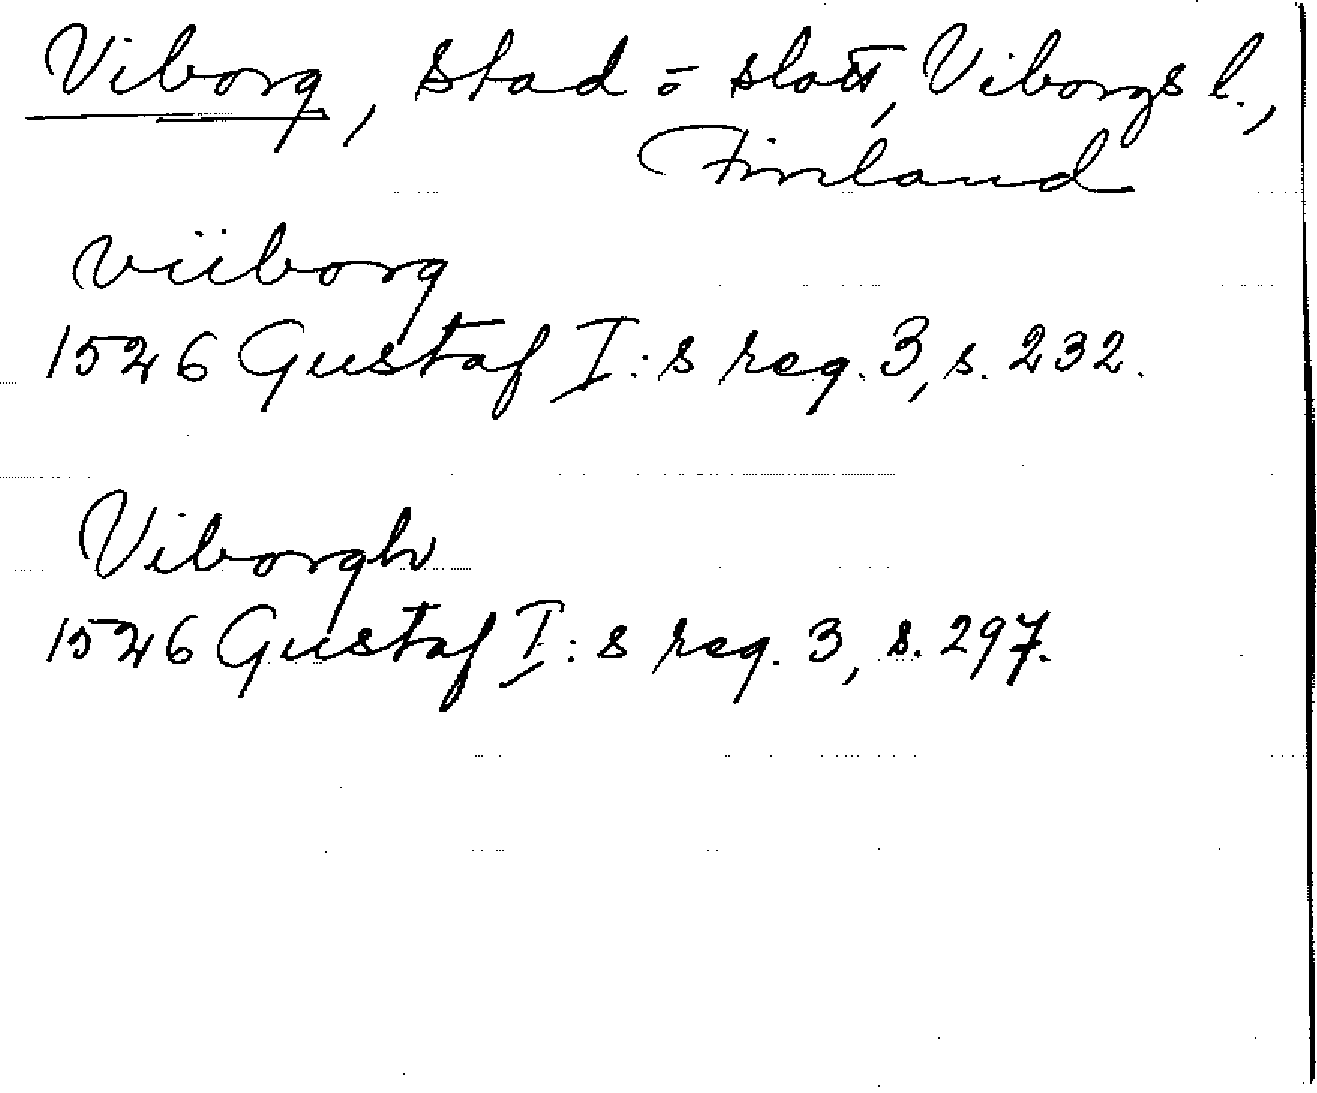 Viborg, stad o slott, Viborgs l.,
Finland
viiborg
1526 Gustaf I:s reg. 3, s. 232.
Viborgh
1526 Gustaf I:s reg. 3, s. 297.